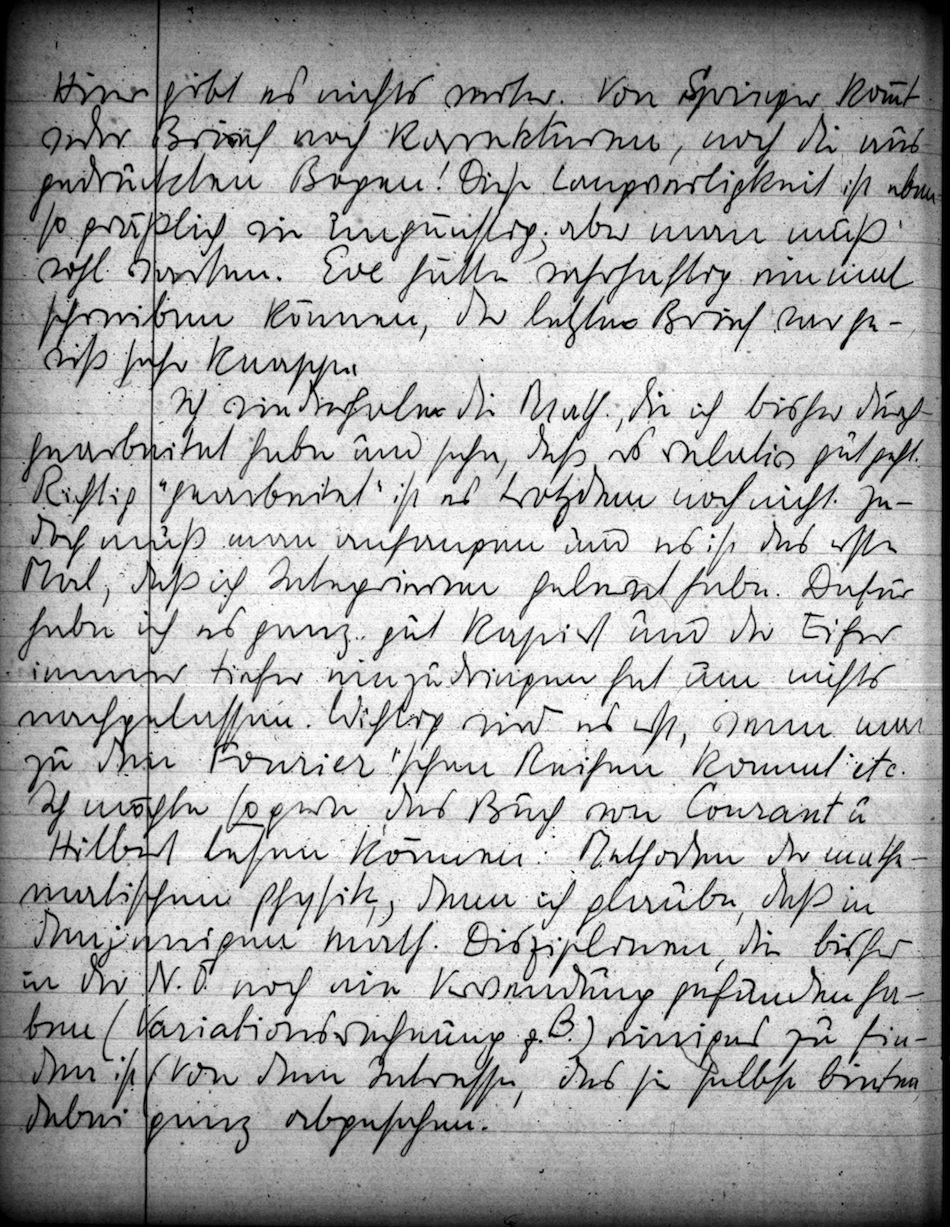 Hier gibt es nichts weiter. Von Springer kom̅t
weder Brief noch Korrekturen, noch die aus-
gedruckten Bogen! Diese Langweiligkeit ist eben
so gräßlich wie                 aber man muß
wohl warten. Eve hätte wahrhaftig einmal
schreiben können, der letzte Brief war ge-
wiß sehr knapp.
Ich wiederhole die Math., die ich bisher durch-
gearbeitet habe und sehe, daß es relativ gut geht.
Richtig "gearbeitet" ist es trotzdem noch nicht. Je-
doch muß man anfangen und es ist das erste
Mal, daß ich Integrieren gelernt habe. Dafür
habe ich es ganz gut kapiert und der Eifer
immer tiefer einzudringen hat um nichts
nachgelassen. Wichtig wird es erst, wenn man
zu den Fourier'schen Reihen kommt etc.
Ich möchte so gern das Buch von Courant u
Hilbert lesen können: Methoden der mathe-
matischen Physik, denn ich glaube, daß in
denjenigen math. Disziplinen, die bisher
in der N.Ö. noch nie Verwendung gefunden ha-
ben (Variationsrechnung z.B.) einiges zu fin-
den ist (Von dem Interesse, das sie selbst bieten,
dabei ganz abgesehen.